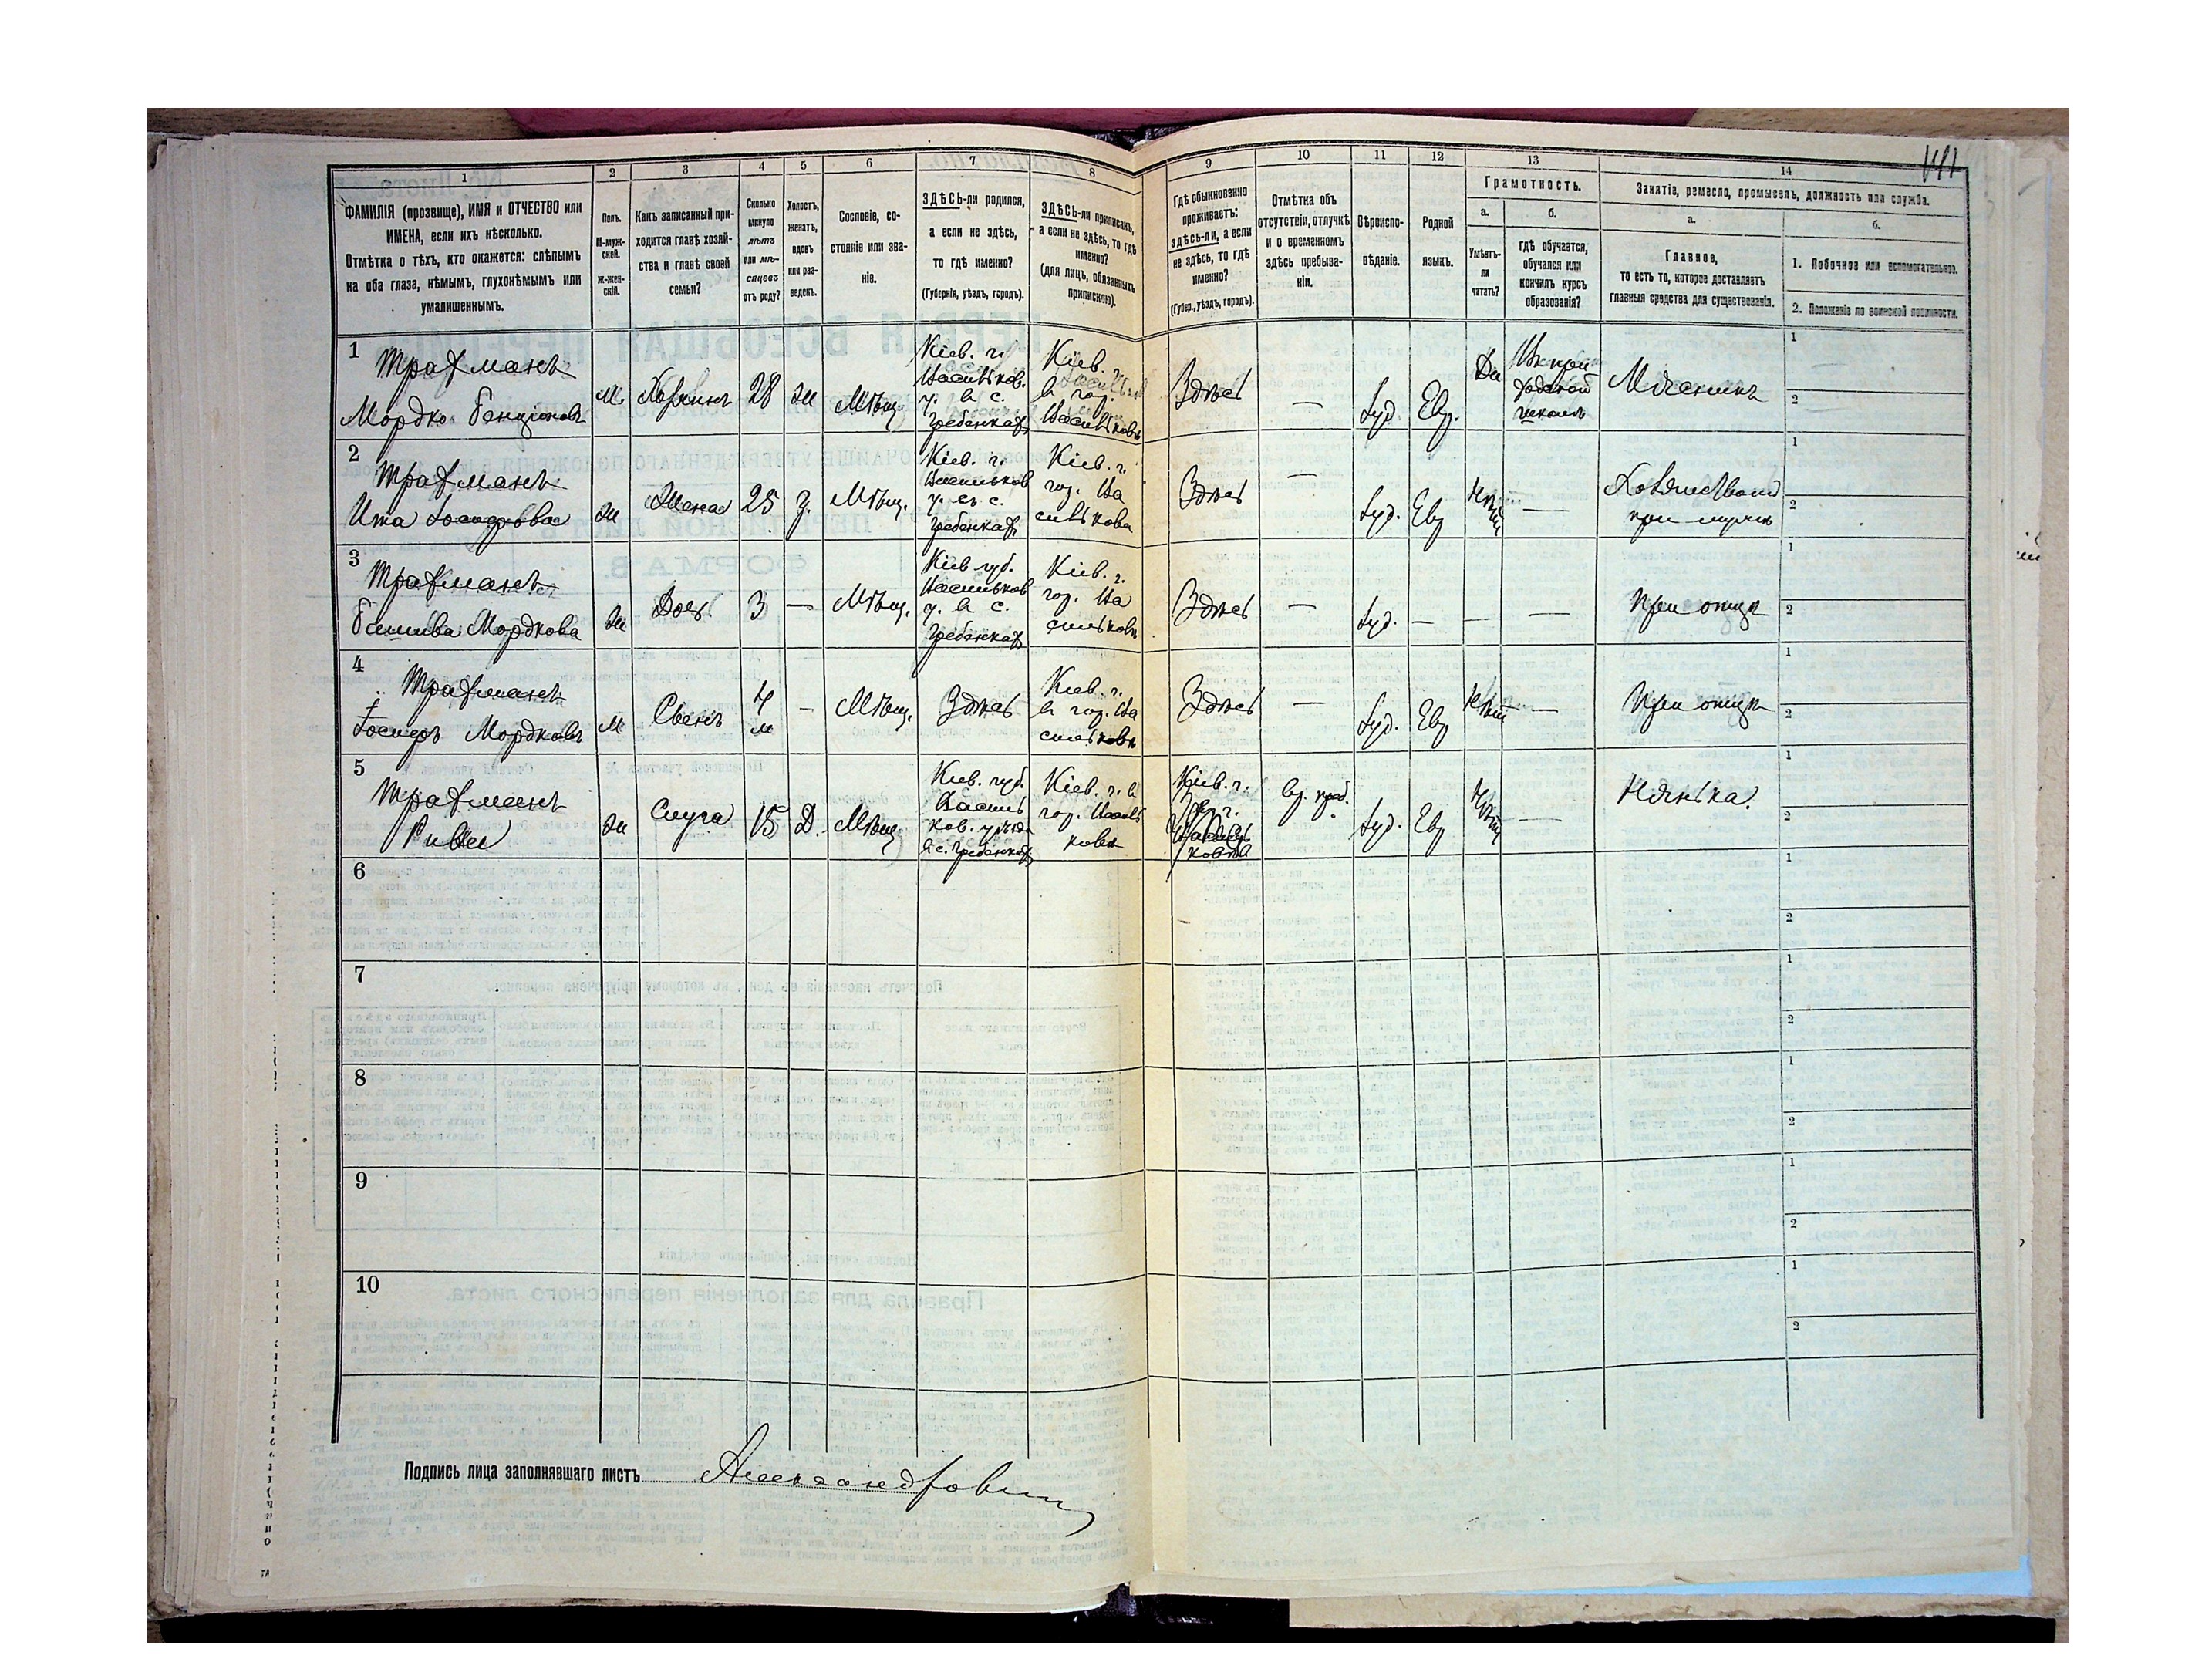 1
2
3
4
5
6
7
8
9
10
11
12
13
14
ФАМИЛІЯ (прозвище), ИМЯ и ОТЧЕСТВО или
ИМЕНА, если ихъ нѣсколько.
Отмѣтка о тѣхъ, кто окажется: слѣпымъ
на оба глаза, нѣмымъ, глухонѣмымъ или
умалишеннымъ.
Полъ.
М-муж-
ской.
Ж-жен-
скій.
Какъ записанный при-
ходится главѣ хозяй-
ства и главѣ своей
семьи?
Сколько
минуло
лѣтъ
или мѣ-
сяцевъ
отъ роду?
Холостъ,
женатъ,
вдовъ
или раз-
веденъ.
Сословіе, со-
стояніе или зва-
ніе.
ЗДѢСЬ-ли родился,
а если не здѣсь,
то гдѣ именно?
(Губернія, уѣздъ, городъ).
ЗДѢСЬ-ли приписанъ,
а если не здѣсь, то гдѣ
именно?
(для лицъ, обязанныхъ
припискою).
Гдѣ обыкновенно
проживаетъ:
здѣсь-ли, а если
не здѣсь, то гдѣ
именно?
(Губер., уѣздъ, городъ).
Отмѣтка объ
отсутствіи, отлучкѣ
и о временномъ
здѣсь пребыва-
ніи.
Вѣроиспо-
вѣданіе.
Родной
языкъ.
Грамотность.
а.
Умѣетъ-
ли
читать?
б.
гдѣ обучается,
обучался или
кончилъ курсъ
образованія?
Занятіе, ремесло, промыселъ, должность или служба.
а.
Главное,
то есть то, которое доставляетъ
главныя средства для существованія.
б.
1. Побочное или вспомогательное.
2. Положеніе по воинской повинности.
1
Трахманъ
Мордко Бенціоновъ
м.
Хозяинъ
28
ж
Мѣщ.
Кіев. г.
Васильков.
у. в с.
Гребенках
Кіев. г.
в гор.
Васильковѣ
Здѣсь
—
Іуд.
Евр.
Да
Мясникъ
1
2
2
Трахманъ
Ита Іосифова
ж
Жена
25
з.
Мѣщ.
Кіев. г.
Васильков
у. въ с.
Гребенках
Кіев. г.
гор. Ва
сильковѣ
Здѣсь
—
Іуд.
Евр
Нѣт
—
при мужѣ
1
2
3
Трахманъ
Мордкова
ж
Доч.
3
—
Мѣщ.
Кіев губ.
Васильков
у. в с.
Гребенках
Кіев. г.
гор. Ва
сильковѣ
Здѣсь
—
Іуд.
—
—
—
При отцѣ
1
2
4
Трахманъ
Іосифъ Мордковъ
м
Сынъ
4
м
—
Мѣщ.
Здѣсь
Кіев. г.
в гор. Ва
сильковѣ
Здѣсь
—
Іуд.
Евр
Нѣт
—
При отцѣ
1
2
5
Трахманъ
Ривка
ж
Слуга
15
Д.
Мѣщ
Кіев. губ.
Василь
ков. уѣзда
в с. Гребенках
Кіев. г. в
гор. Василь
ковѣ
Кіев. г.
Вр. преб.
Іуд.
Евр
Нѣт
—
Нянька.
1
2
6
1
2
7
1
2
8
1
2
9
1
2
10
1
2
Подпись лица заполнявшаго листъ
Александрович